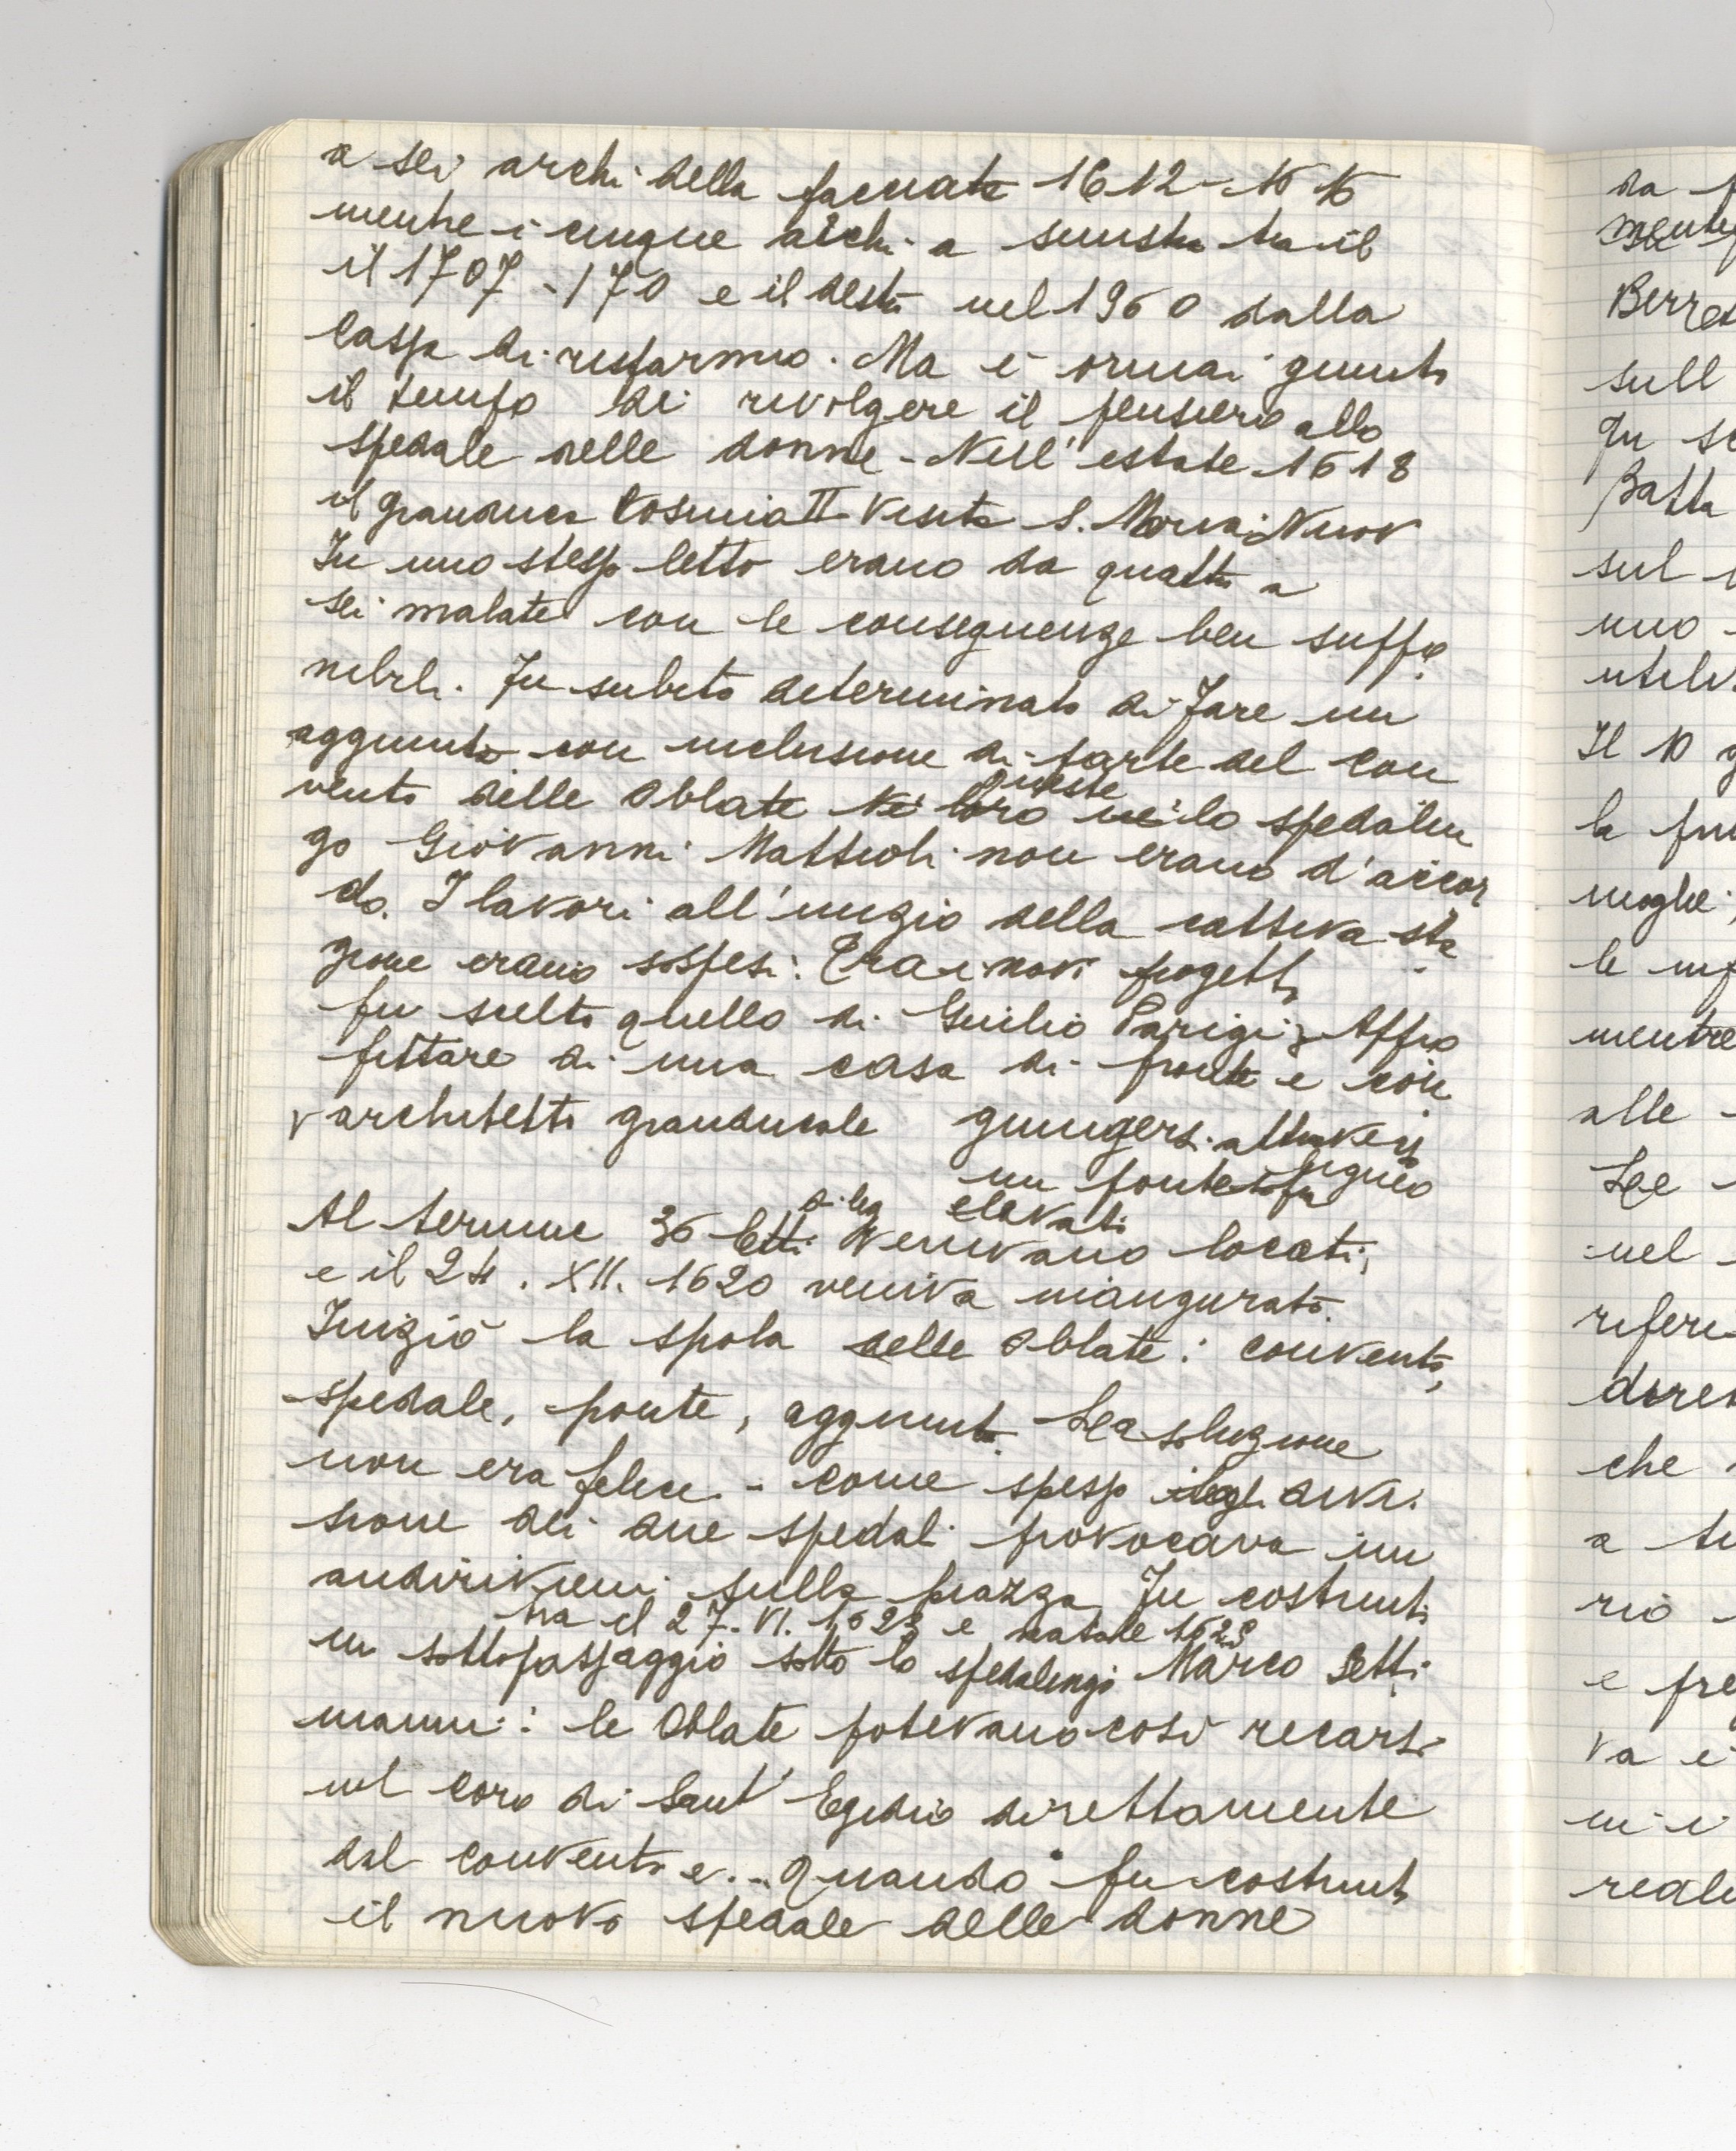 a sei archi della facciata 1612-16 16
mentre i cinque archi a sinistra tra il
il 1707-170 e il destro nel 1960 dalla
Cassa di risparmio. Ma è ormai giunto
il tempo di rivolgere il pensiero allo
spedale delle donne - Nell'estate 1618
il granduca Cosimo II visita S. Maria Nuov
In uno stesso letto erano da quattro a
sei malate con le conseguenze ben suppo
nibili. Fu subito determinato di fare un
aggiunto con inclusione di parte del con
vento delle Oblate Né loro queste né lo spedalin
go Giovanni Mattioli non erano d'accor
do. I lavori all'inizio della cattiva sta
gione erano sospesi. Tra i novi progetti
fu scelto quello di Giulio Parigi: Appro
fittare di una casa di fronte e con
architetto granducale giungersi attraverso
un ponte ligneo
Al termine 36 letti di leg elevati venivano locati,
e il 24. XII. 1620 veniva inaugurato.
Iniziò la spola delle Oblate: convento,
spedale, ponte, aggiunto. La soluzione
non era felice. - come spesso divi
sione dei due spedali provocava un
andirivieni sulla piazza. Fu costruito
tra il 27. VI. 1623 e natale 1623
un sottopassaggio sotto lo spedalingo Marco Setti
manni: le Oblate potevano così recarsi
nel coro di Sant'Egidio direttamente
dal convento e... quando fu costruito
il nuovo spedale delle donne
da
mente
Berre
sull
In
Batta
sul
uno
utili
Il 10 g
la
moglie
le
mentre
alle
nel
riferi
che
a
rio
e fre
va e